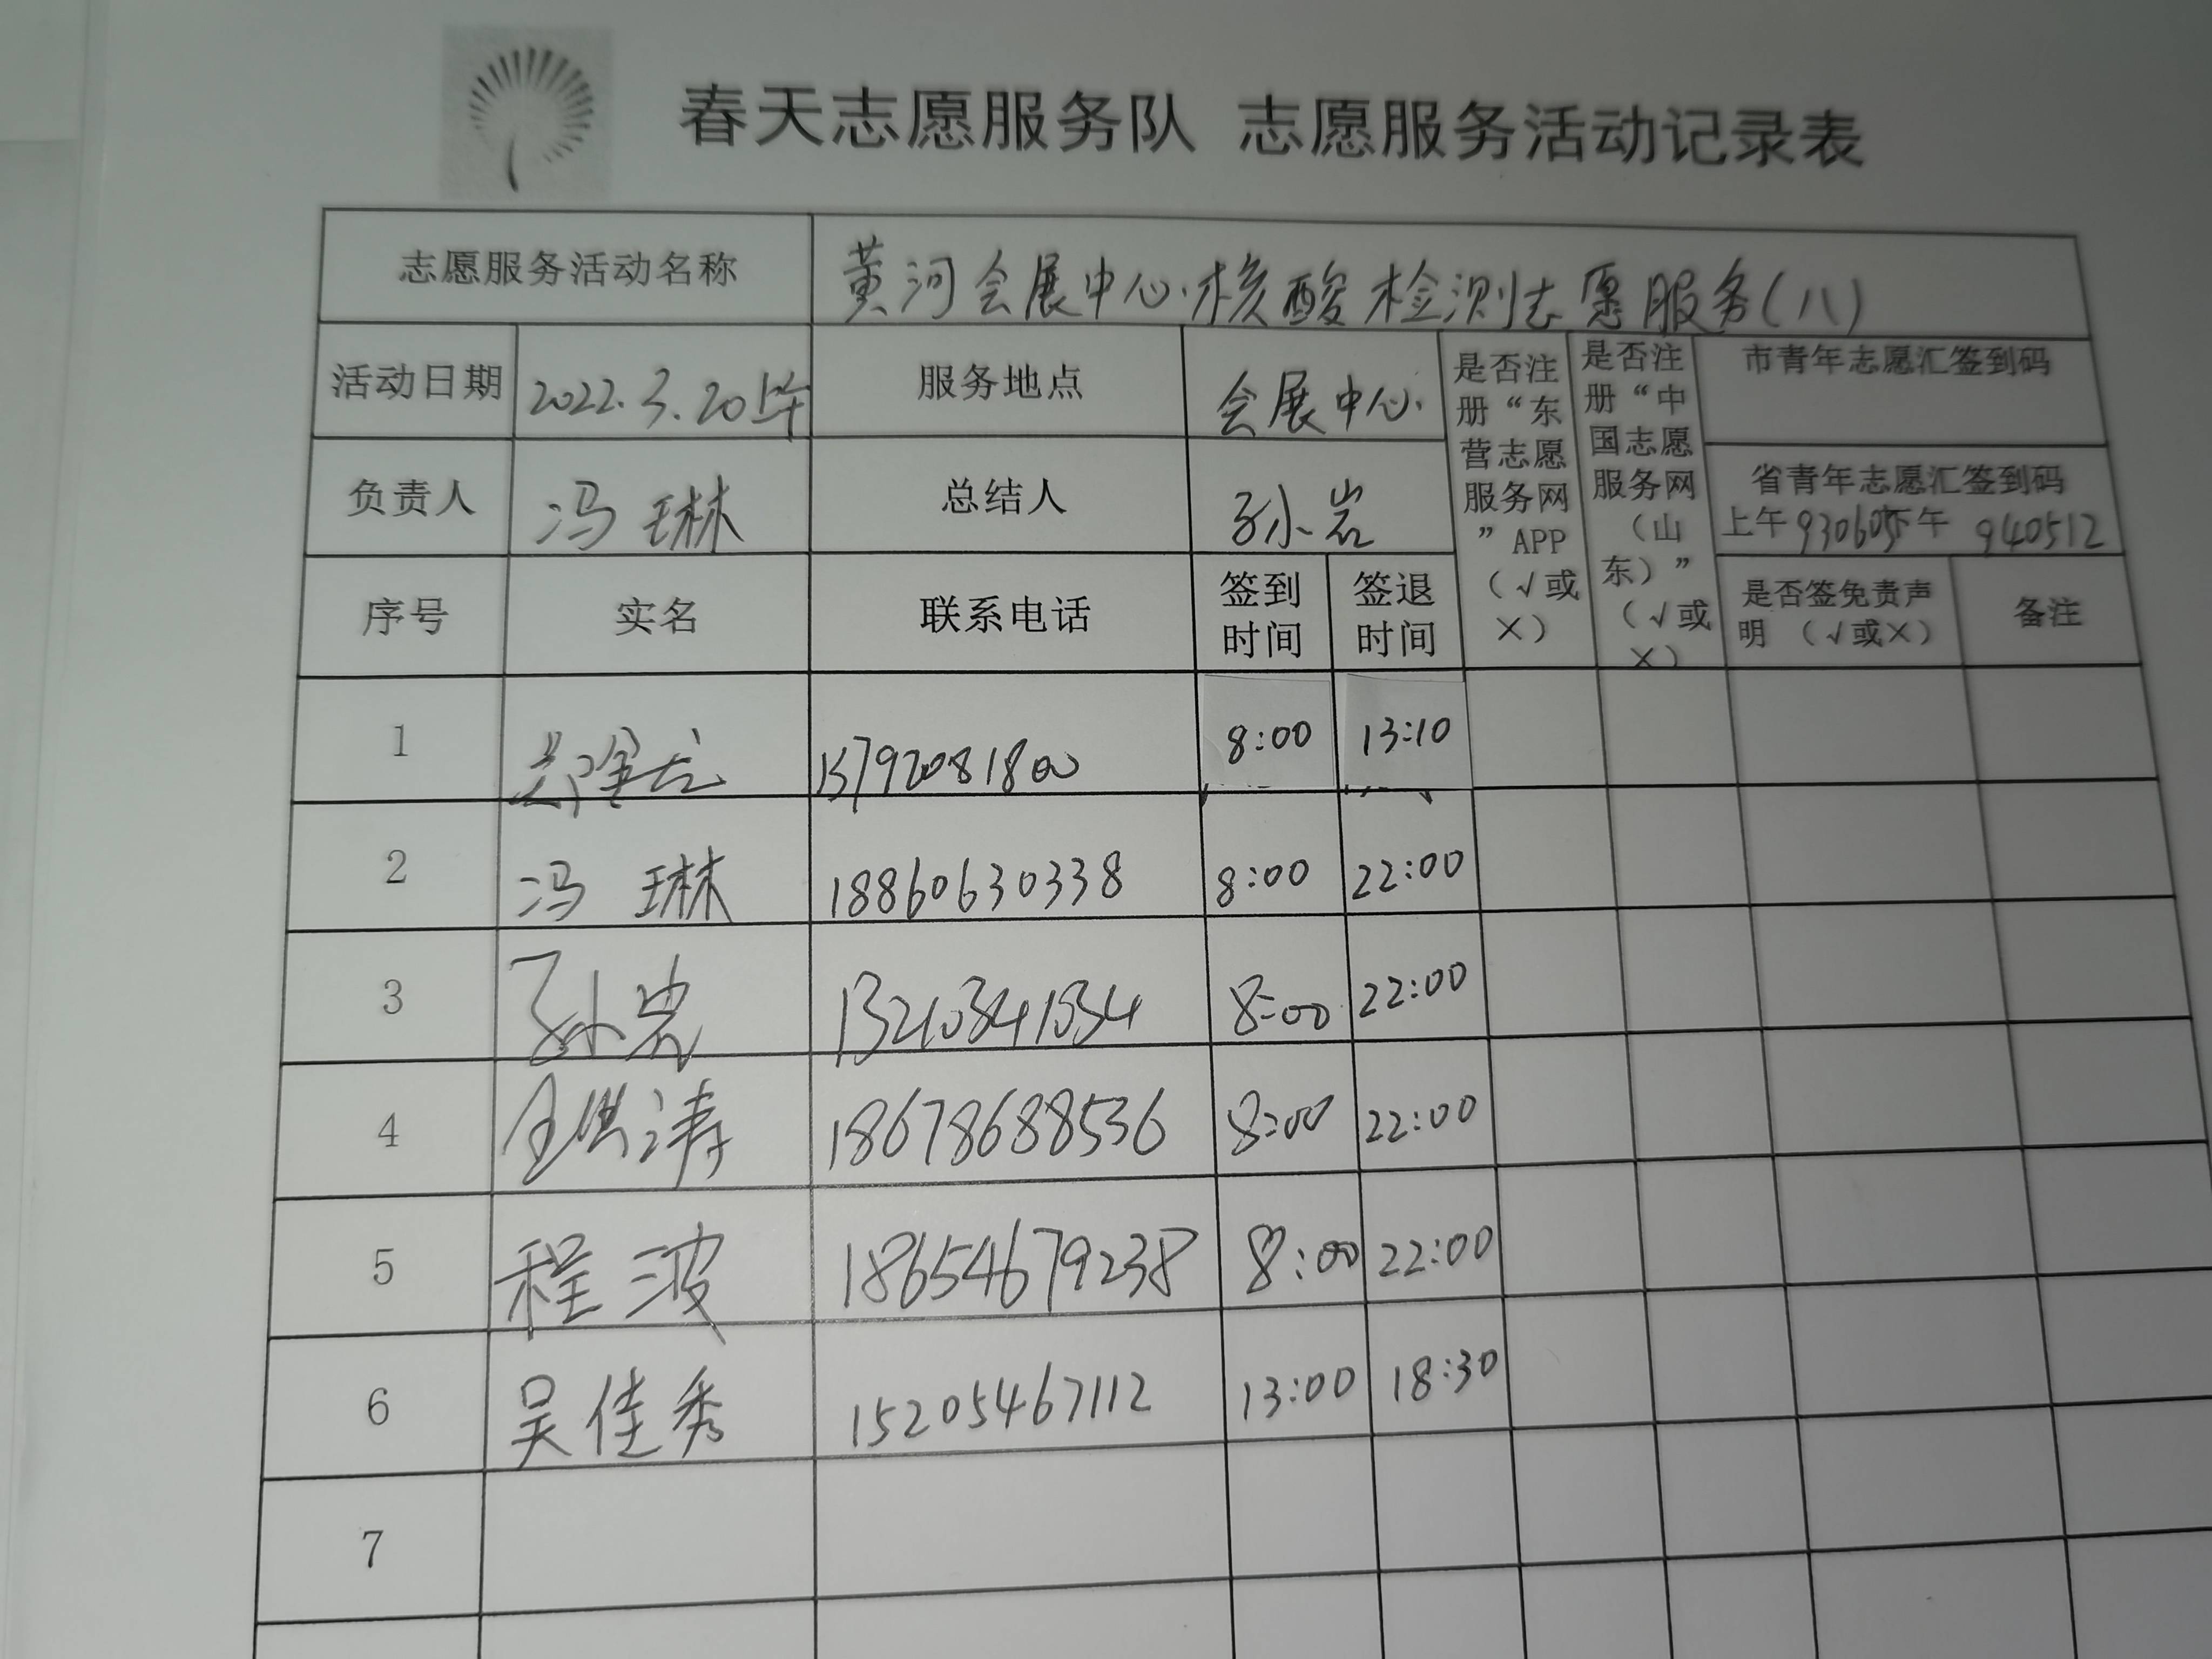 春天志愿服务队 志愿服务活动记录表
志愿服务活动名称 黄河会展中心核酸检测志愿服务(八)
活动日期 2022.3.20 服务地点 会展中心
是否注册“东营志愿服务网”APP（√或×）
是否注册“中国志愿服务网（山东）”（√或×）
市青年志愿汇签到码
负责人 冯琳 总结人 孙岩
省青年志愿汇签到码
上午 下午 940512
序号 实名 联系电话 签到时间 签退时间 是否签免责声明（√或×） 备注
1 13792081800 8:00 13:10
2 冯琳 18860630338 8:00 22:00
3 孙岩 8:00 22:00
4 18678688536 8:00 22:00
5 程波 18654679238 8:00 22:00
6 吴佳秀 15205467112 13:00 18:30
7